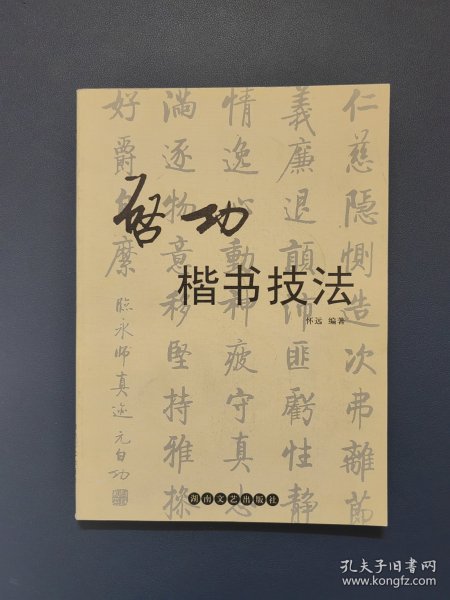 启功
楷书技法
怀远 编著
仁慈隱惻造次弗離節
義廉退顛沛匪虧性靜
情逸心動神疲守真志
滿逐物意移堅持雅操
好爵自縻
臨永師真迹元白功
湖南文艺出版社
孔夫子旧书网
www.kongfz.com